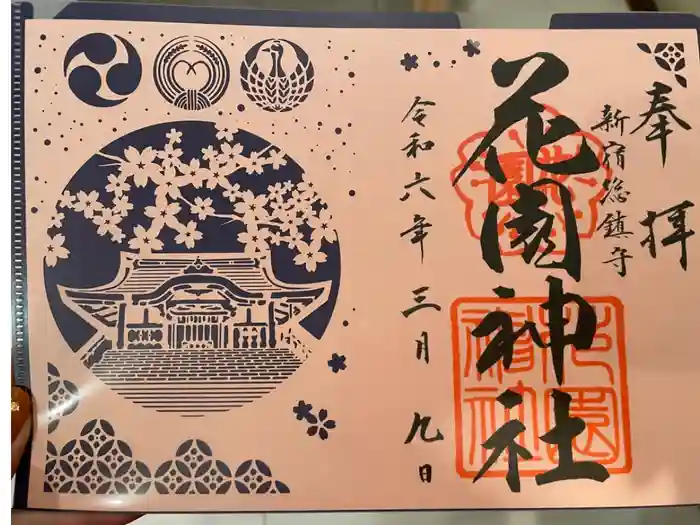 奉拝
新宿総鎮守
花園神社
花園神社
令和六年三月九日